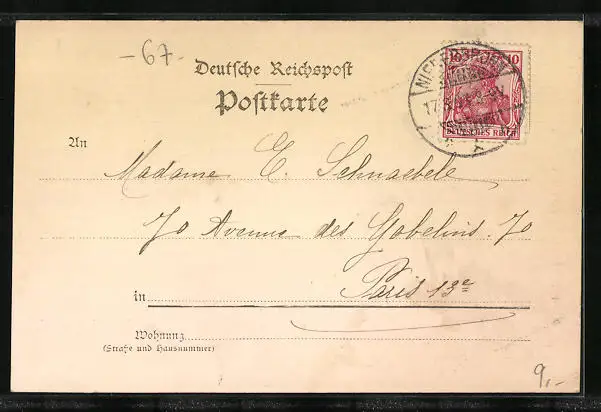 -67-
Deutsche Reichspost
Postkarte
10 10
DEUTSCHES REICH
An
Madame E. Schnaebele
70 Avenue des Gobelins. 70
in Paris 13e
Wohnung
(Straße und Hausnummer)
9,-